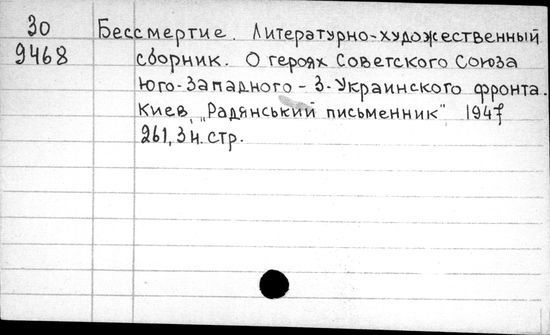 30
9468
Бессмертие. Литературно-художественный
сборник. О героях Советского Союза
Юго-Западного - 3-Украинского фронта.
Киев, „Радянський письменник" 1947
261, 3 н. стр.